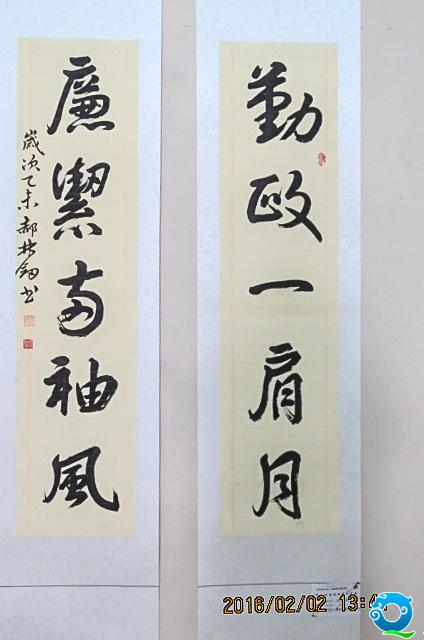 勤政一肩月
廉潔兩袖風
歲次乙未郝
書
2016/02/02 13:4